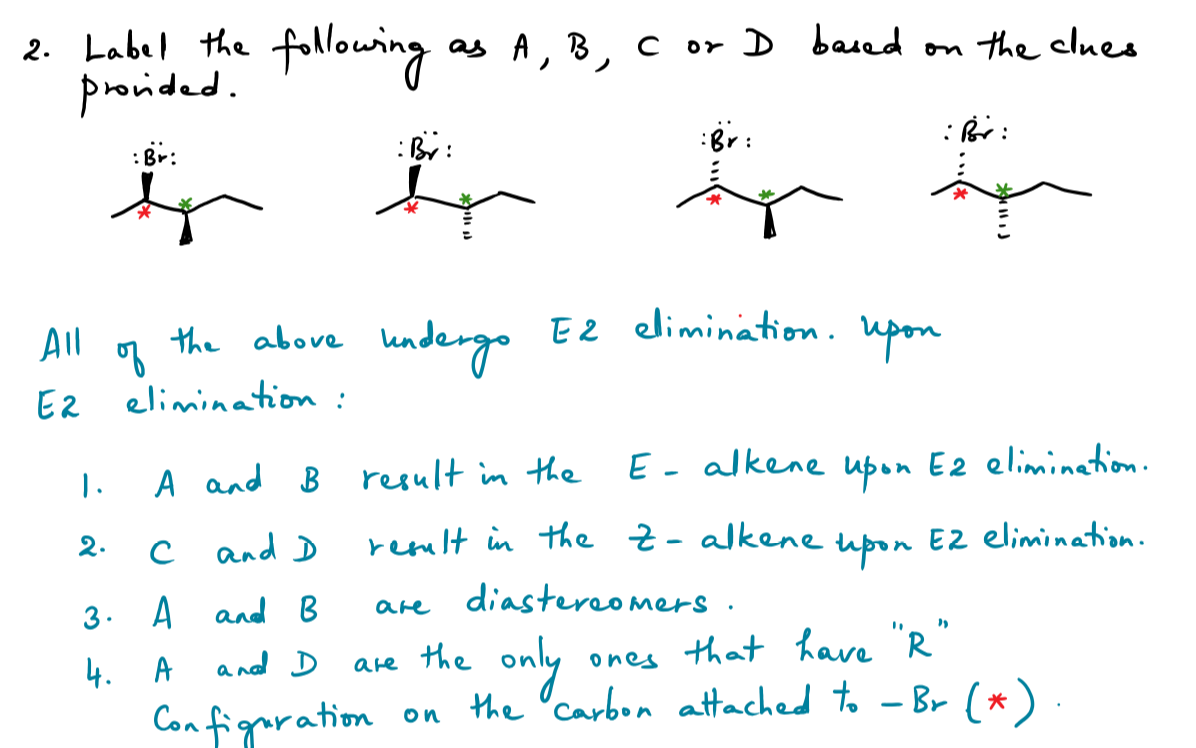 2. Label the following as A, B, C or D based on the clues
provided.
:Br: :Br: :Br: :Br:
* * * * * * * *
All of the above undergo E2 elimination. Upon
E2 elimination :
1. A and B result in the E - alkene upon E2 elimination.
2. C and D result in the Z - alkene upon E2 elimination.
3. A and B are diastereomers .
4. A and D are the only ones that have "R"
Configuration on the carbon attached to - Br (*) .